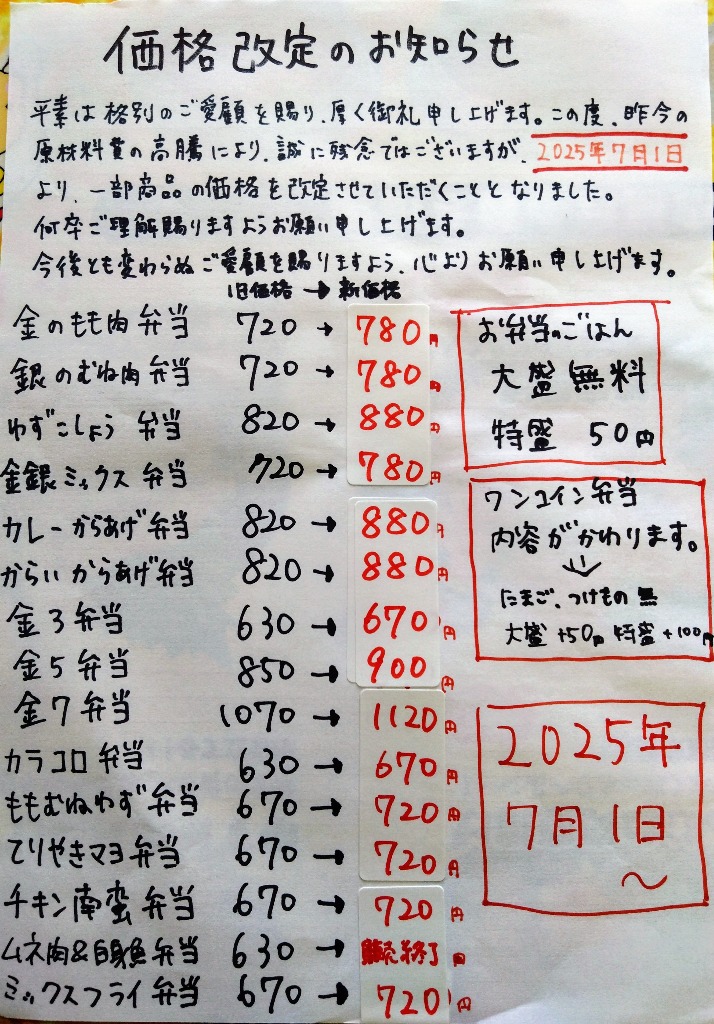 価格改定のお知らせ
平素は格別のご愛顧を賜り、厚く御礼申し上げます。この度、昨今の
原材料費の高騰により、誠に残念ではございますが、2025年7月1日
より、一部商品の価格を改定させていただくこととなりました。
何卒ご理解賜りますようお願い申し上げます。
今後とも変わらぬご愛顧を賜りますよう、心よりお願い申し上げます。
旧価格→新価格
金のもも肉弁当 720→780円
銀のむね肉弁当 720→780円
ゆずこしょう弁当 820→880円
金銀ミックス弁当 720→780円
カレーからあげ弁当 820→880円
からいからあげ弁当 820→880円
金3弁当 630→670円
金5弁当 850→900円
金7弁当 1070→1120円
カラコロ弁当 630→670円
ももむねゆず弁当 670→720円
てりやきマヨ弁当 670→720円
チキン南蛮弁当 670→720円
ムネ肉&白身魚弁当 630→販売終了
ミックスフライ弁当 670→720円
お弁当のごはん
大盛無料
特盛 50円
ワンコイン弁当
内容がかわります。
たまご、つけもの無
大盛+50円 特盛+100円
2025年
7月1日
～